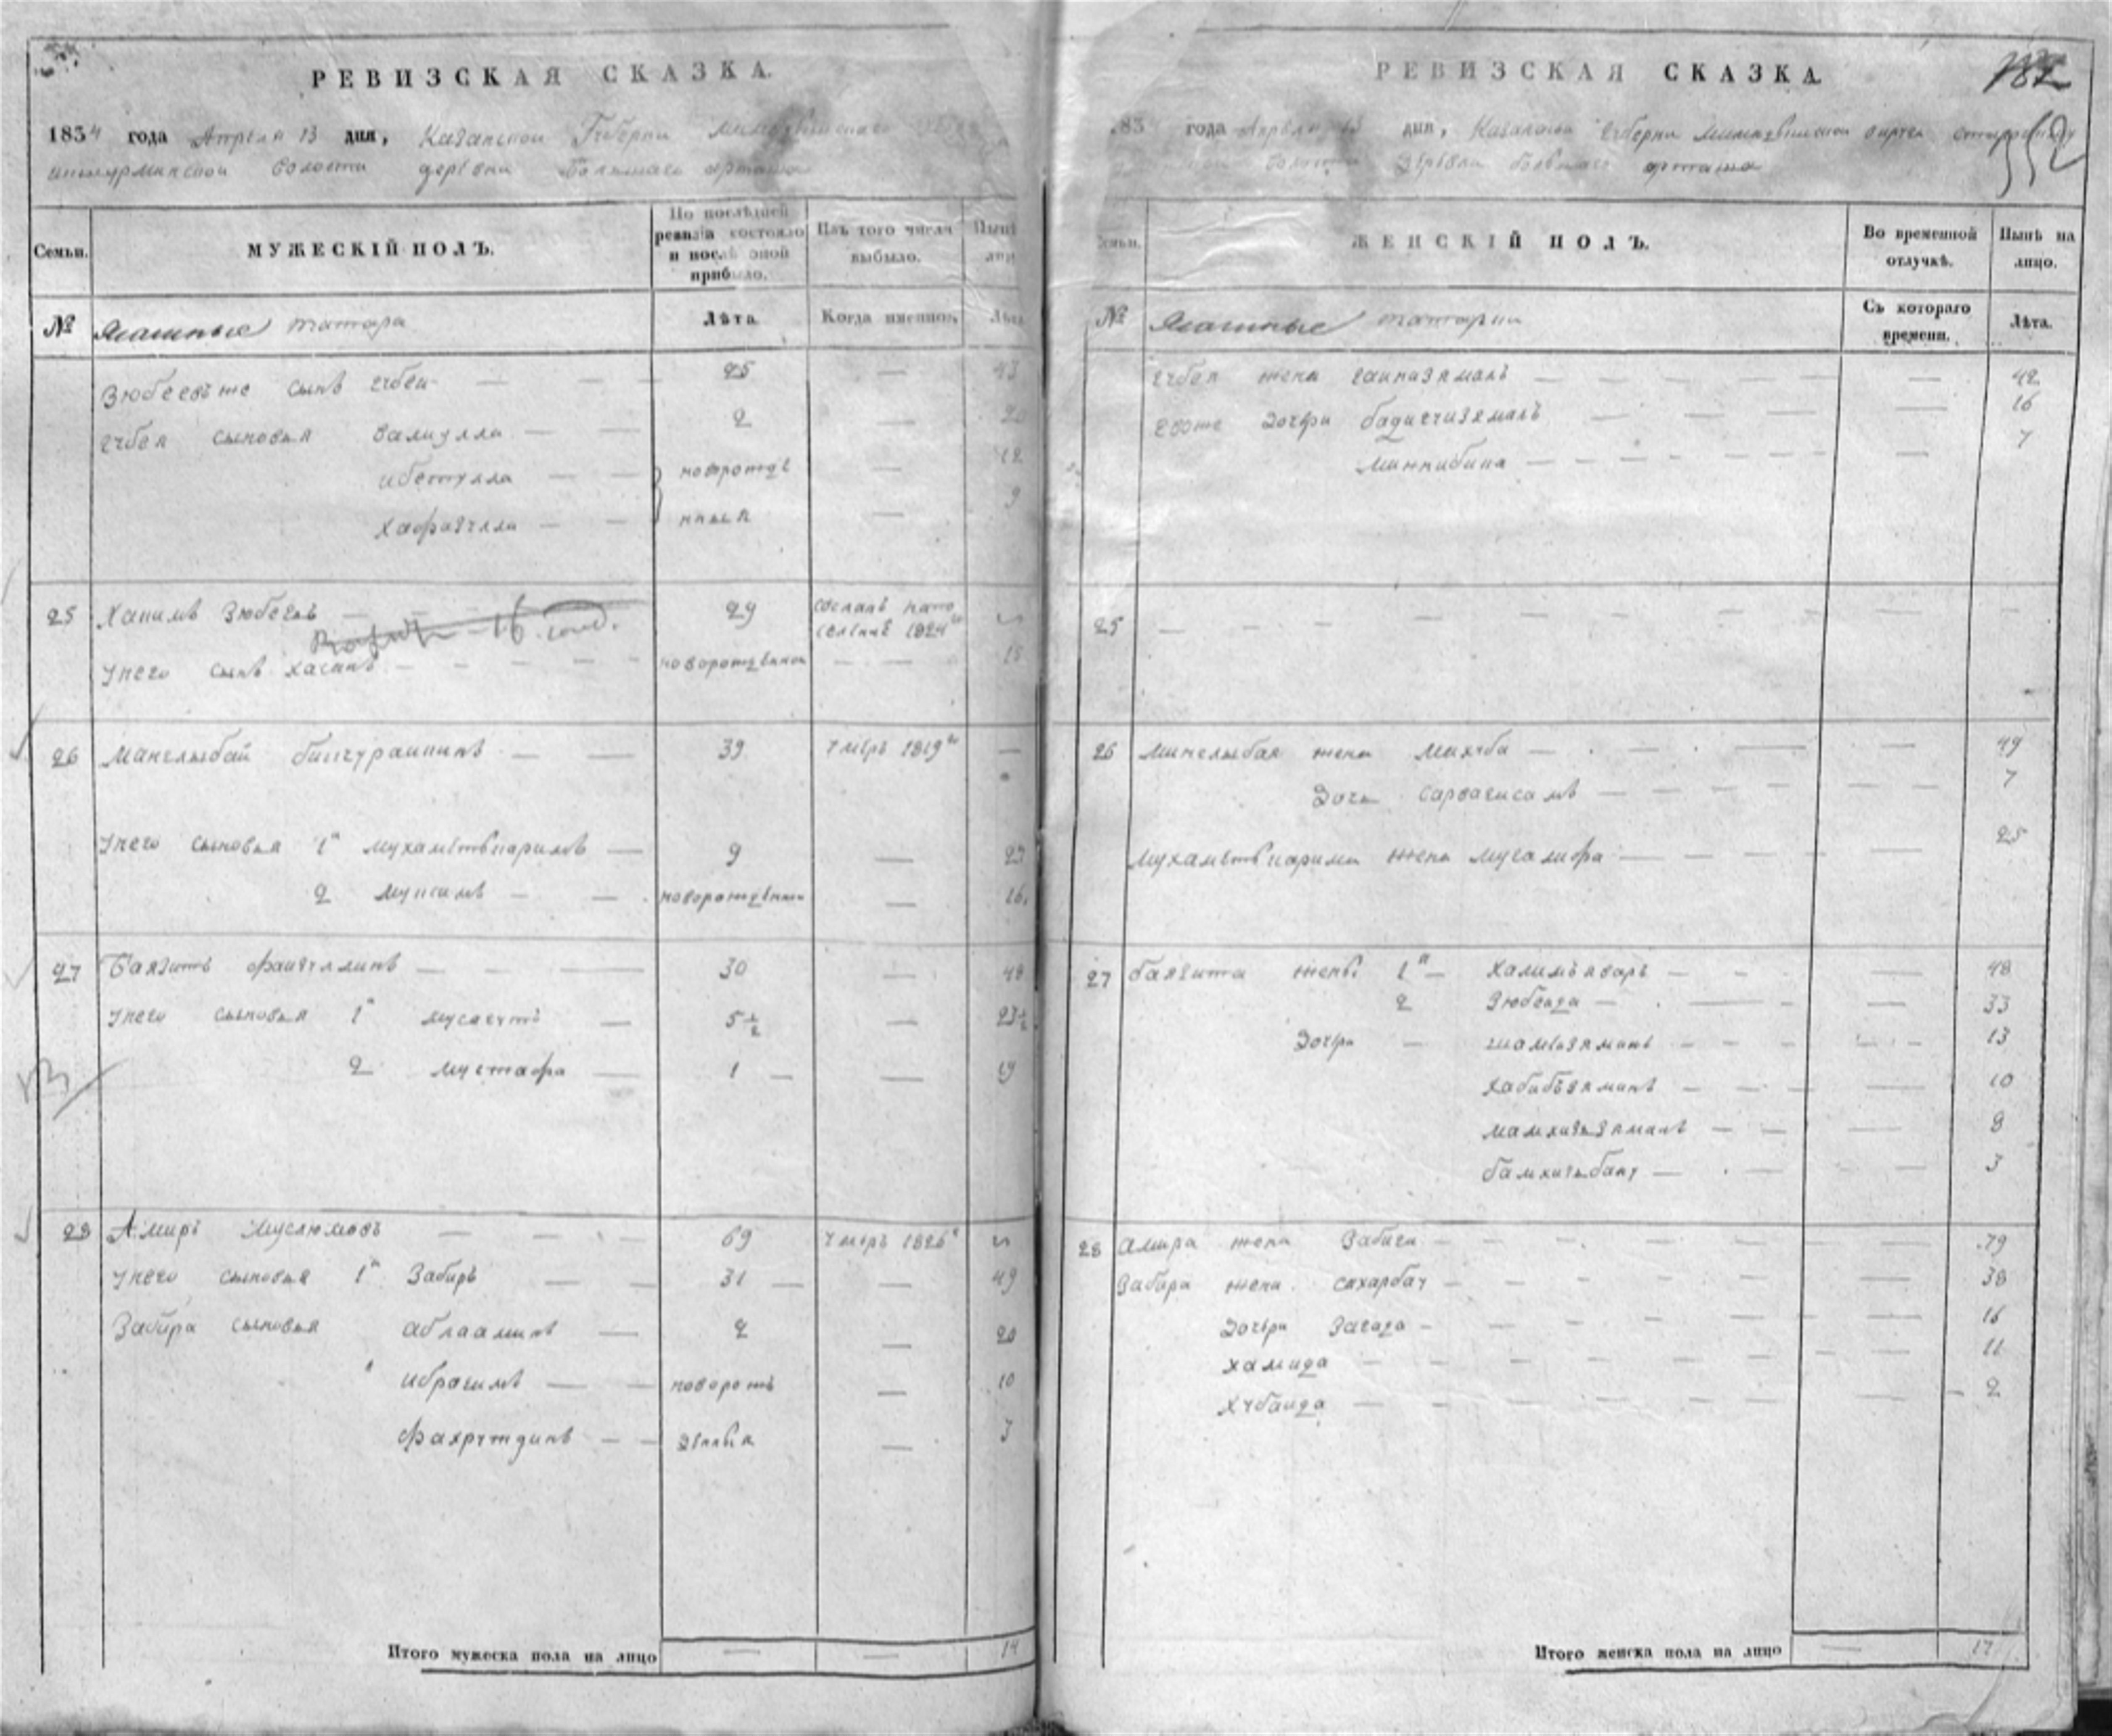 РЕВИЗСКАЯ СКАЗКА.
1834 года Апреля 13 дня, Казанской Губерни
волости деревни Большаго
Семьи.
МУЖЕСКІЙ ПОЛЪ.
По послѣдней ревизіи состояло и послѣ оной прибыло.
Изъ того числа выбыло.
Нынѣ
№
Ясашные татара
Лѣта
Когда именно.
Лѣта
Зюбеевъ же сынъ Губеи — 25 — 43
Губея сыновья валиулла — 2 — 20
ибетулла — новорожде — 12
хафазулла — нныя — 9
25 Ханимъ Зюбеевъ — 29 сосланъ на по
селение 1824
16
У него сынъ хасанъ — новорожденнои — 15
26 Манглыбай — 39 умеръ 1819 —
У него сыновья 1 мухаметькаримъ — 9 — 27
2 мунсимъ — новорожденыи — 16.
27 Баязитъ фаизуллинъ — 30 — 48
У него сыновья 1 мусагутъ — 5 1/2 — 23 1/2
2 мустафа — 1 — 19
28 Амиръ Муслюмовъ — 69 умеръ 1826
У него сыновья 1 Забиръ — 31 — 49
Забира сыновья аблааминъ — 2 — 20
ибрагимъ — новорож — 10
фахрутдинъ — денныя — 3
Итого мужеска пола на лицо — — 14
РЕВИЗСКАЯ СКАЗКА.
182
552
183 года Апреля 13 дня, Казанской Губерни
волости деревни
ЖЕНСКІЙ ПОЛЪ.
Во временной отлучкѣ.
Нынѣ на лицо.
№
Ясашные татарки
Съ котораго времени.
Лѣта.
Губея жена гаиназямалъ — 42
его же дочери бадигулзямалъ — 16
Миннибика — 7
25 —
26 Мингльбая жена Махуба — 49
Дочь сарвагисамъ — 7
Мухаметькарима жена мугалифа — 25
27 баязита жены 1 — халимъ явгаръ — 48
2 Зюбеида — 33
Дочери — шамсизяманъ — 13
хабибъзяманъ — 10
— 8
— 3
28 Амира жена Забига — 79
Забира жена сахарбау — 38
Дочери Загида — 16
хамида — 11
хубаида — 2
Итого женска пола на лицо — 17